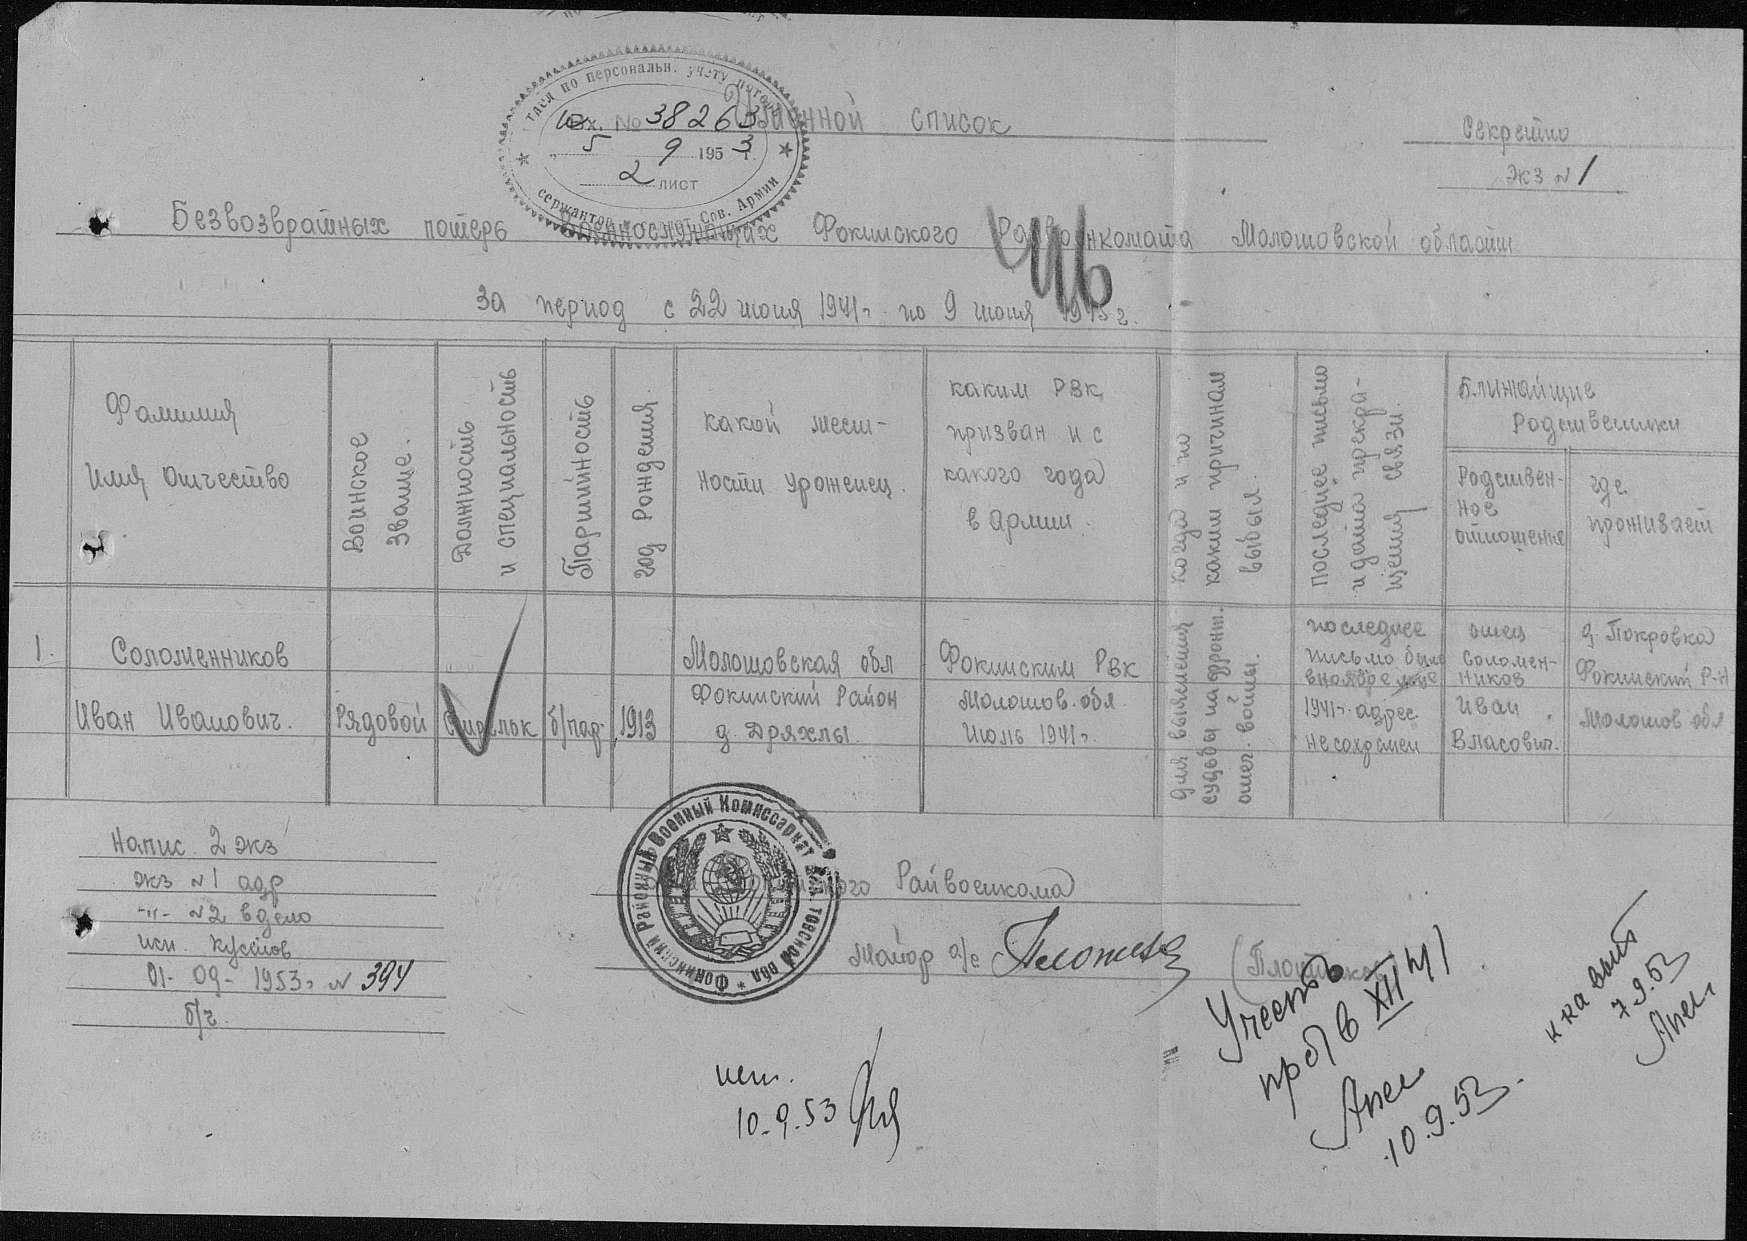 Отдел по персональн. учету потерь
Вх. № 38263
5 9 1953 г.
2 лист
сержантов Сов. Армии
Именной список
Секретно
экз №1
Безвозвратных потерь Военнослужащих Фокинского Райвоенкомата Молотовской области
за период с 22 июня 1941г. по 9 июня 1945г.
Фамилия
Имя Отчество
Воинское
Звание.
Должность
и специальность
Партийность
год рождения
какой мест-
ности уроженец.
каким РВК,
призван и с
какого года
в армии.
когда и по
каким причинам
выбыл.
последнее письмо
и дата прекра-
щения связи.
Ближайшие
Родственники
Родствен-
ное
отношение
где
проживает
1.
Соломенников
Иван Иванович.
Рядовой
Стрелок
б/пар
1913
Молотовская обл
Фокинский Район
д. Дряхлы.
Фокинским РВК
Молотов. обл.
Июль 1941г.
для выяснения
судьбы на фронт.
отеч. войны.
последнее
письмо было
в ноябре м-це
1941г. адрес
не сохранен
отец
Соломен-
ников
Иван
Власович.
д. Покровка
Фокинский Р-Н
Молотов обл
Напис 2 экз
экз №1 адр
-"- №2 в дело
исп. Кустов
01-09-1953г №394
б/ч.
Фокинский Районный Военный Комиссариат Молотовской обл. *
Райвоенкома
Майор а/с
Учесть
пр/б в XII 41
10.9.53
7.9.53
исп.
10.9.53